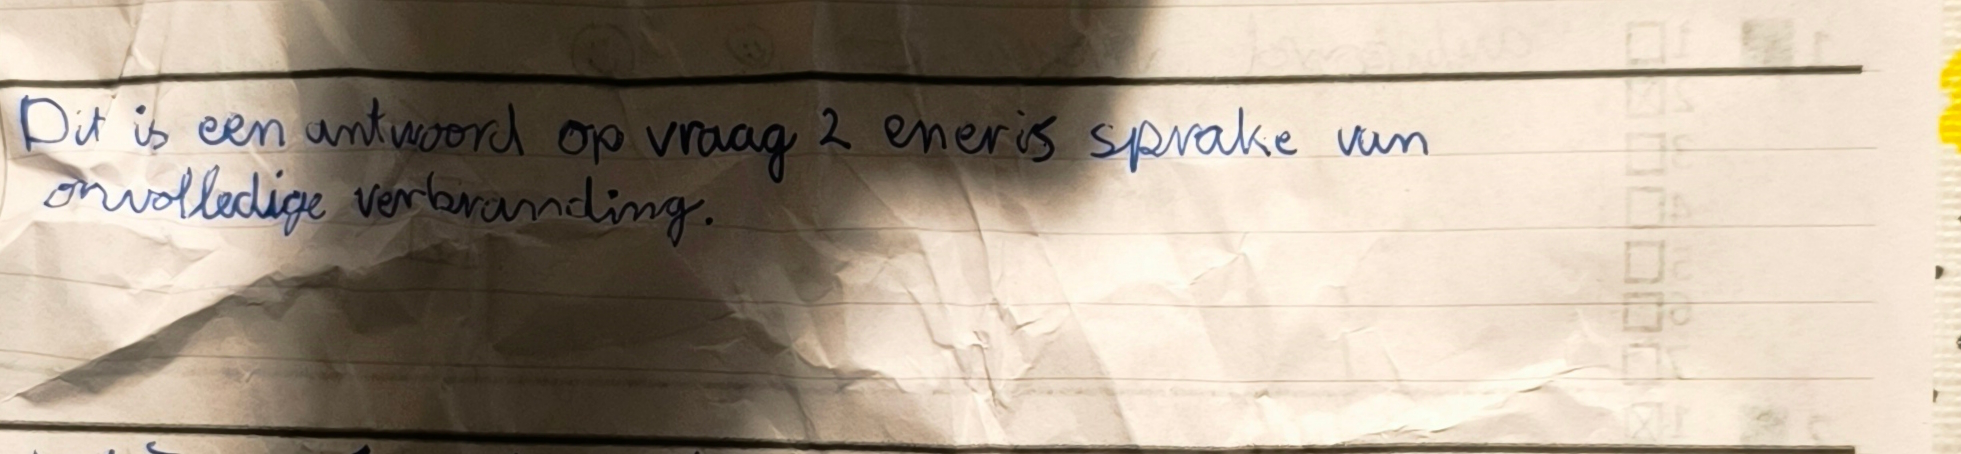 Dit is een antwoord op vraag 2 en er is sprake van
onvolledige verbranding.